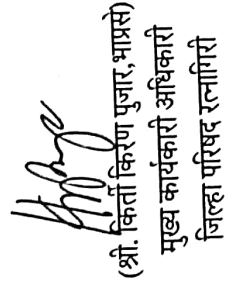 (श्री. किर्ती किरण पुजार, भाप्रसे)
मुख्य कार्यकारी अधिकारी
जिल्हा परिषद रत्नागिरी